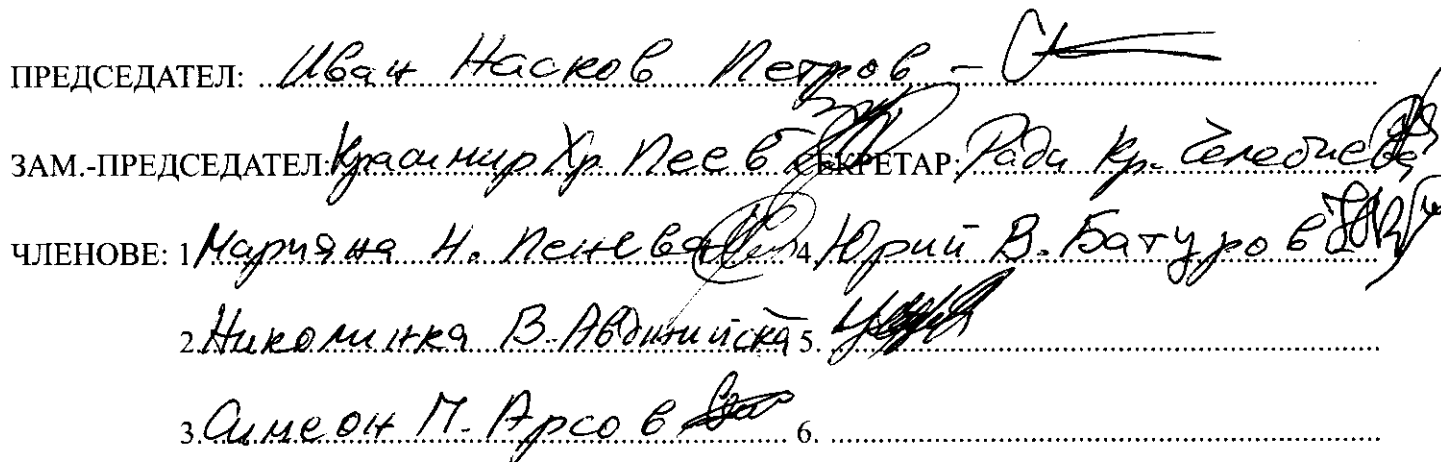 ПРЕДСЕДАТЕЛ: Иван Насков Петров -
ЗАМ.-ПРЕДСЕДАТЕЛ: Красимир Хр. Пеев СЕКРЕТАР: Ради Кр. Челебиева
ЧЛЕНОВЕ: 1. Марияна Н. Пенева 4. Юрий В. Батуров
2. Николинка В. 5.
3. Симеон М. Арсов 6.